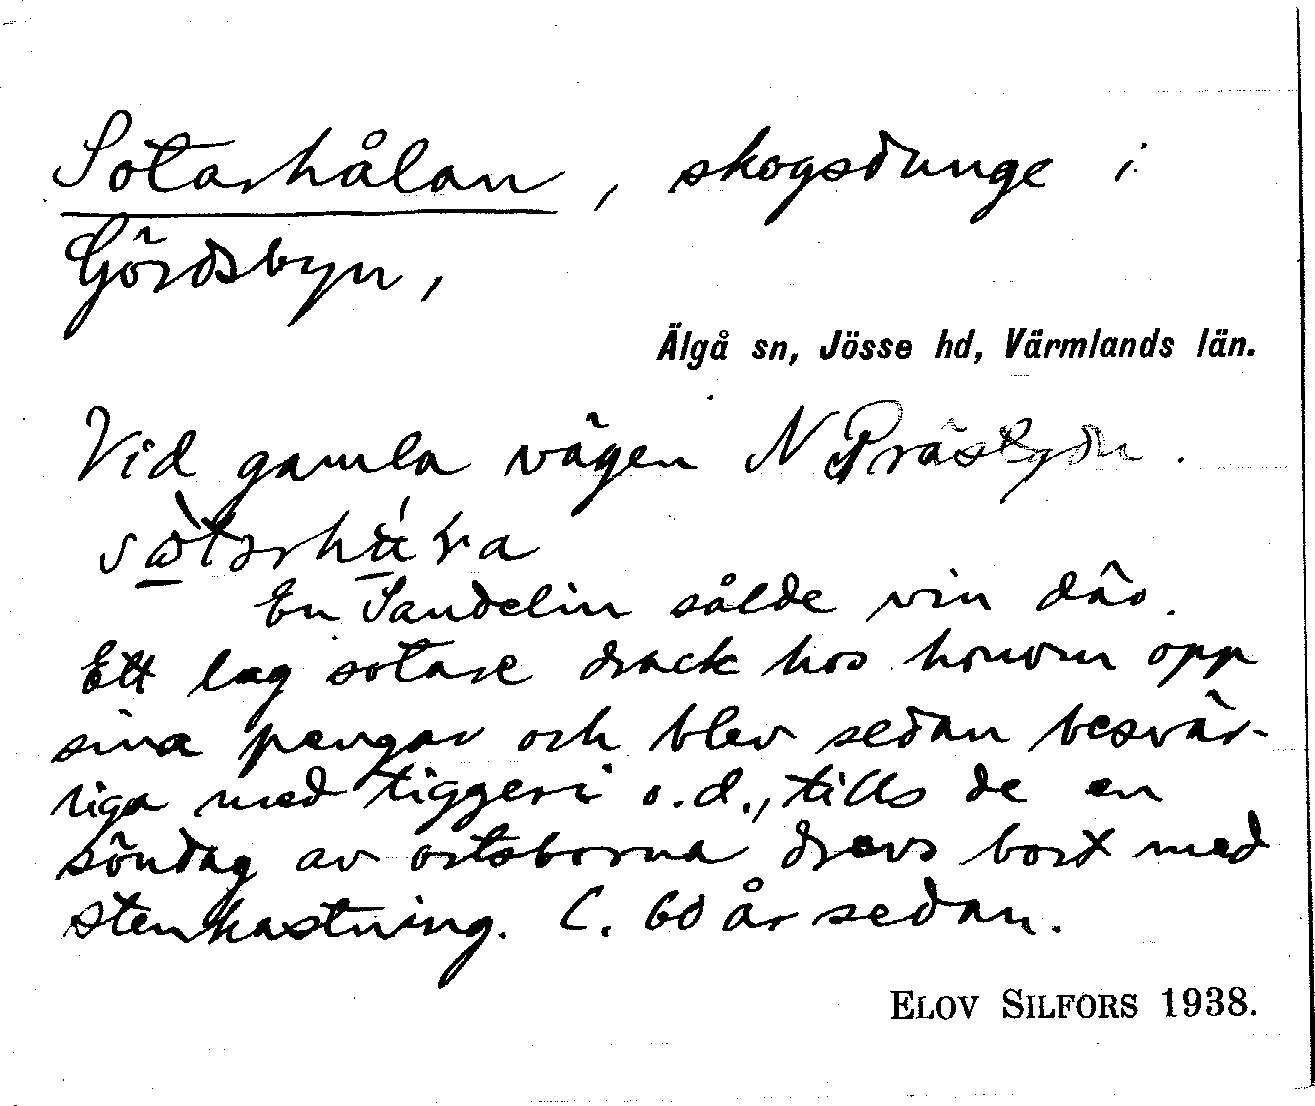 Sotarhålan, skogsdunge i
Gördsbyn,
Älgå sn, Jösse hd, Värmlands län.
Vid gamla vägen N Prästgdn.
En Sandelin sålde vin där.
Ett lag sotare drack hos honom opp
sina pengar och blev sedan besvär-
liga med tiggeri o.d., tills de en
söndag av ortsborna drevs bort med
stenkastning. C. 60 år sedan.
ELOV SILFORS 1938.